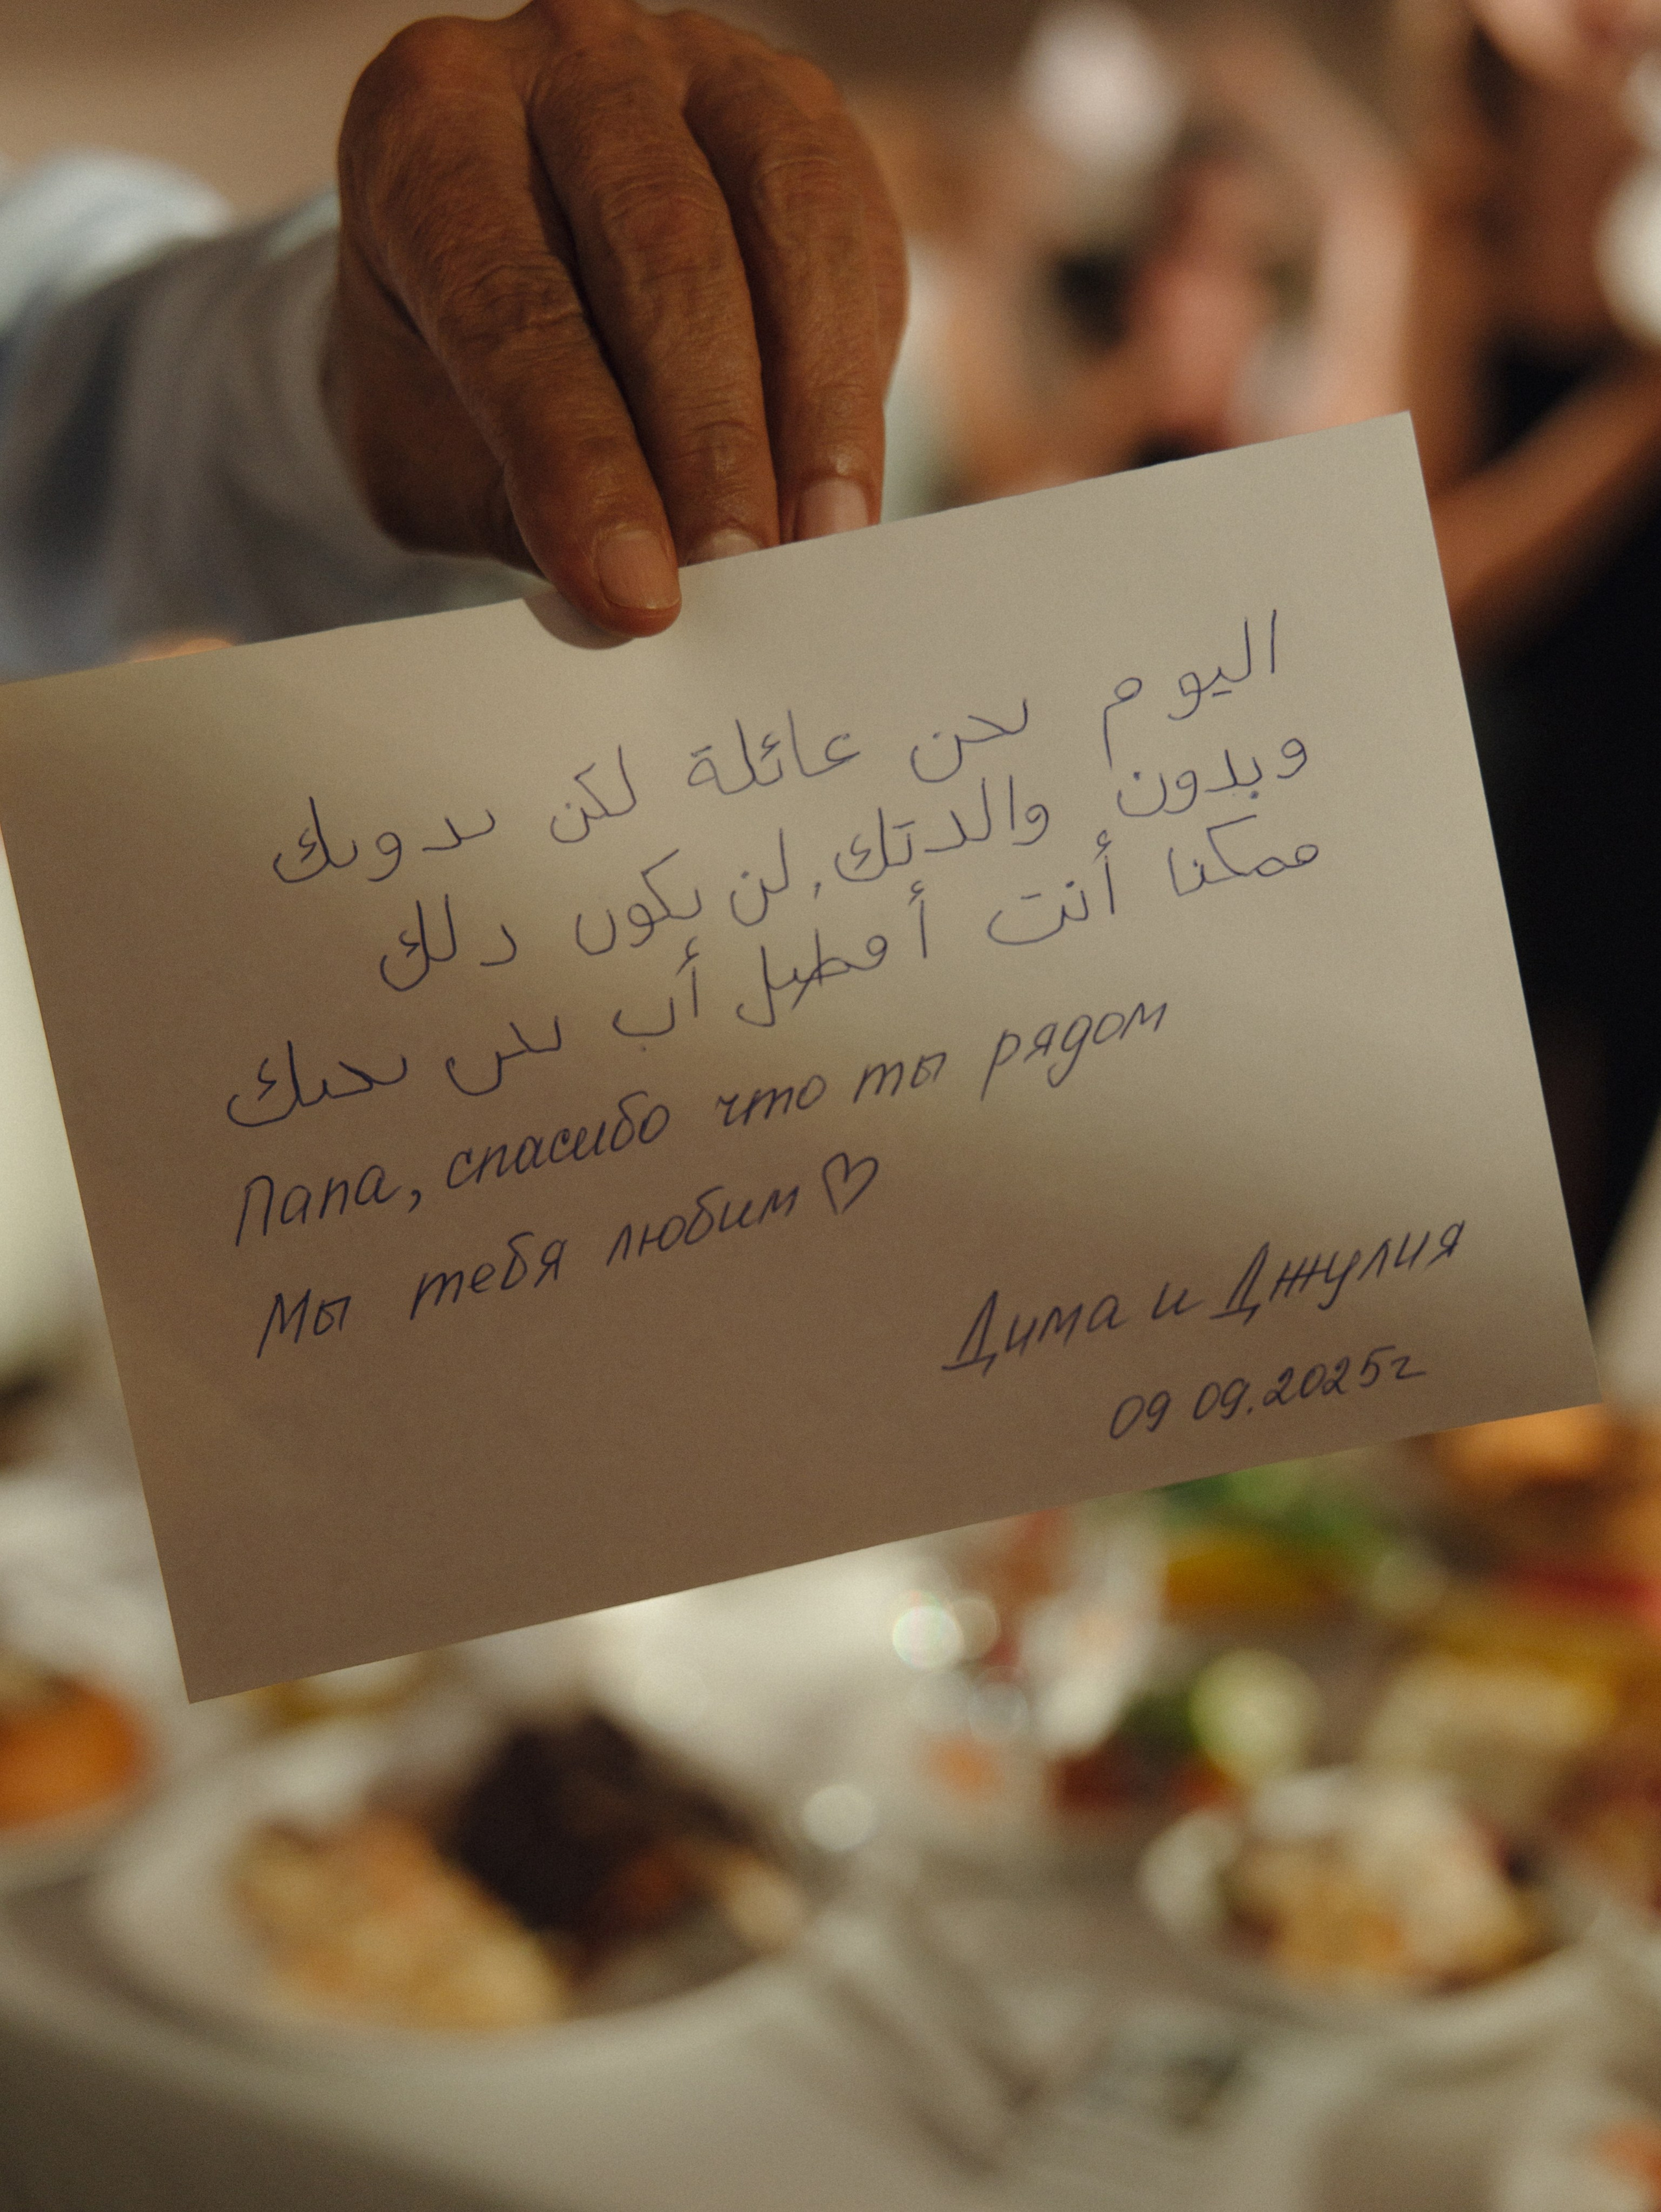 اليوم نحن عائلة لكن بدونك
وبدون والدتك, لن يكون ذلك
ممكنا أنت أفضل أب نحن نحبك
Папа, спасибо что ты рядом
Мы тебя любим ♡
Дима и Джулия
09 09.2025г